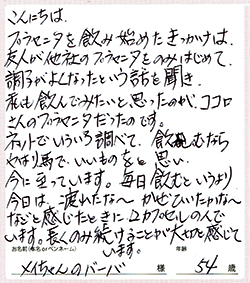 こんにちは。
プラセンタを飲み始めたきっかけは、
友人が他社のプラセンタをのみはじめて、
調子がよくなったという話を聞き、
私も飲んでみたいと思ったのが、ココロ
さんのプラセンタだったのです。
ネットでいろいろ調べて、飲むなら
やはり馬で、いいものをと思い
今に至っています。毎日飲むというより
今日は、疲れたな～ かぜひいたかな～
などと感じたときに、2カプセルのんで
います。長くのみ続けることが大切と感じて
います。
お名前(本名orペンネーム) 年齢
メイちゃんのバーバ 様 54歳